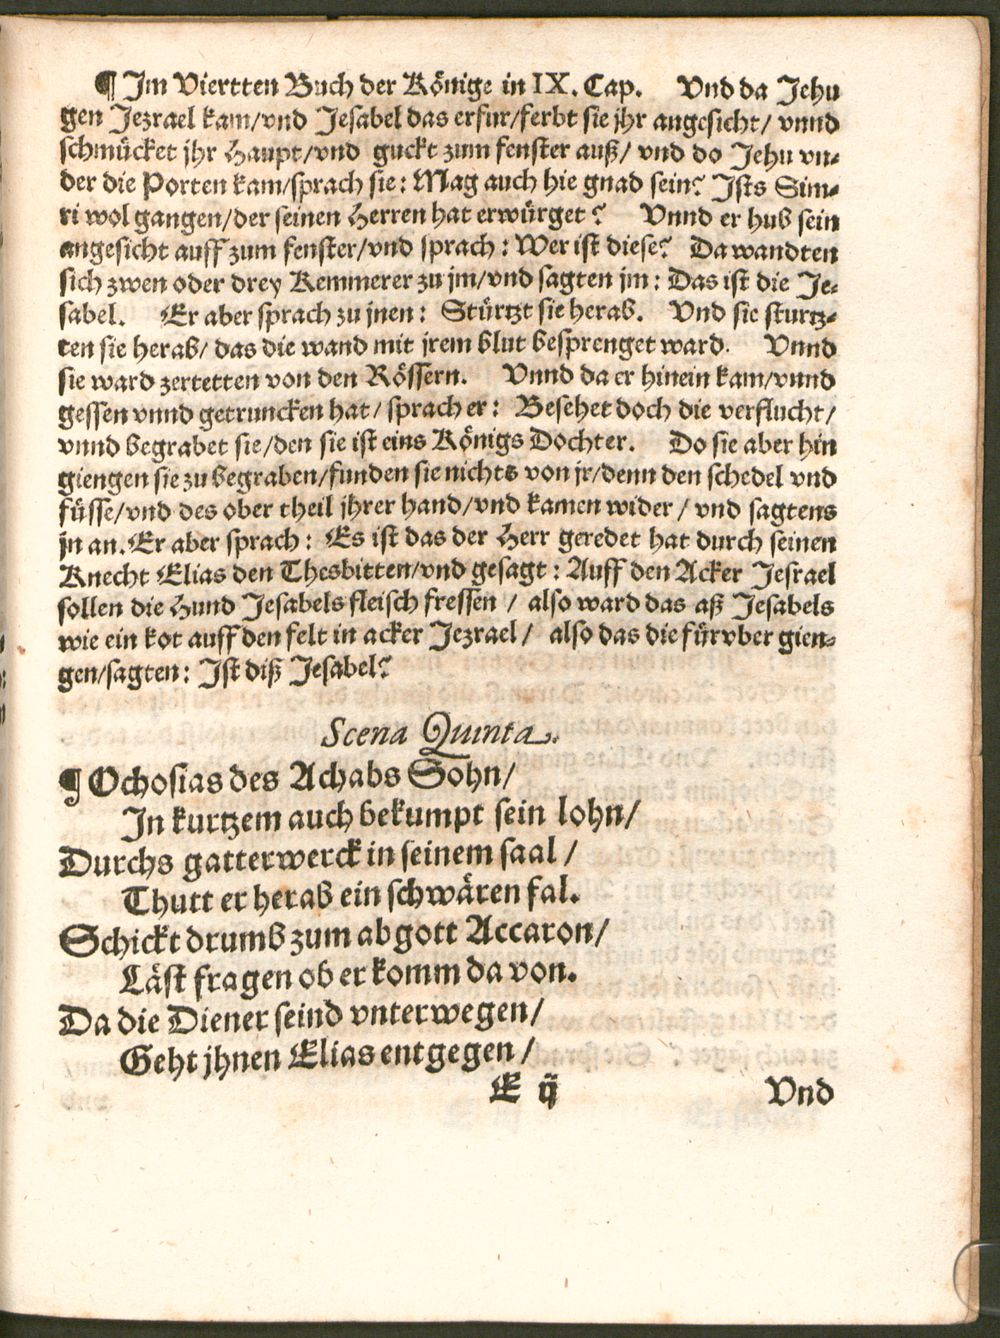 ¶ Im Viertten Buch der Könige in IX. Cap. Vnd da Jehu
gen Jezrael kam/vnd Jesabel das erfur/ferbt sie jhr angesicht/ vnnd
schmücket jhr Haupt/vnd guckt zum fenster auß/ vnd do Jehu vn-
der die Porten kam/sprach sie: Mag auch hie gnad sein? Ists Sim-
ri wol gangen/der seinen Herren hat erwürget? Vnnd er hub sein
angesicht auff zum fenster/vnd sprach: Wer ist diese? Da wandten
sich zwen oder drey Kemmerer zu jm/vnd sagten jm: Das ist die Je-
sabel. Er aber sprach zu jnen: Stürtzt sie herab. Vnd sie sturtz-
ten sie herab/ das die wand mit jrem blut besprenget ward. Vnnd
sie ward zertetten von den Rössern. Vnnd da er hinein kam/vnnd
gessen vnnd getruncken hat/ sprach er: Besehet doch die verflucht/
vnnd begrabet sie/den sie ist eins Königs Dochter. Do sie aber hin
giengen sie zu begraben/funden sie nichts von jr/denn den schedel vnd
füsse/vnd des ober theil jhrer hand/vnd kamen wider/ vnd sagtens
jn an. Er aber sprach: Es ist das der Herr geredet hat durch seinen
Knecht Elias den Thesbitten/vnd gesagt: Auff den Acker Jesrael
sollen die Hund Jesabels fleisch fressen/ also ward das aß Jesabels
wie ein kot auff den felt in acker Jezrael/ also das die fürvber gien-
gen/sagten: Ist diß Jesabel?
Scena Quinta.
¶ Ochosias des Achabs Sohn/
In kurtzem auch bekumpt sein lohn/
Durchs gatterwerck in seinem saal/
Thutt er herab ein schwären fal.
Schickt drumb zum abgott Accaron/
Läst fragen ob er komm da von.
Da die Diener seind vnterwegen/
Geht jhnen Elias entgegen/
E ij Vnd